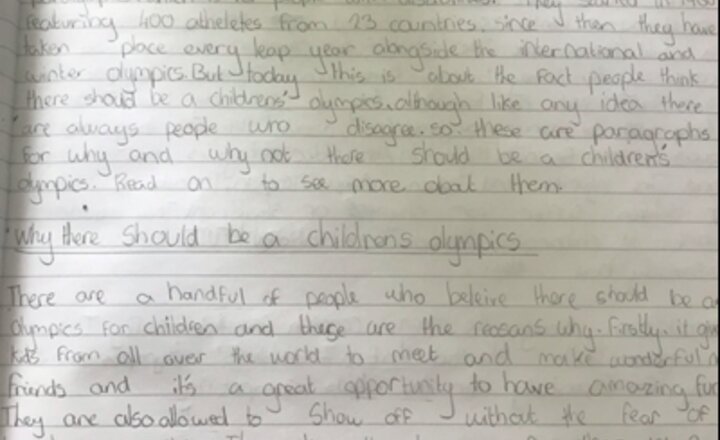 featuring 400 atheletes from 23 countries. since then they have
taken place every leap year alongside the international and
winter olympics. But today this is about the fact people think
there should be a childrens' olympics. although like any idea there
are always people who disagree. so these are paragraphs
for why and why not there should be a children's
olympics. Read on to see more about them.
Why there should be a childrens olympics
There are a handful of people who beleive there should be an
olympics for children and these are the reasons why. firstly. it give
kids from all over the world to meet and make wonderful
friends and it's a great opportunity to have amazing fun
They are also allowed to show off without the fear of